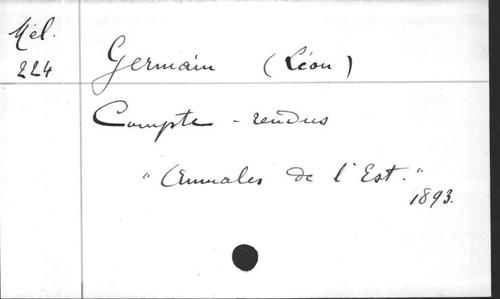 Mél.
224
Germain (Léon)
Compte-rendus
"Annales de l'Est."
1893.